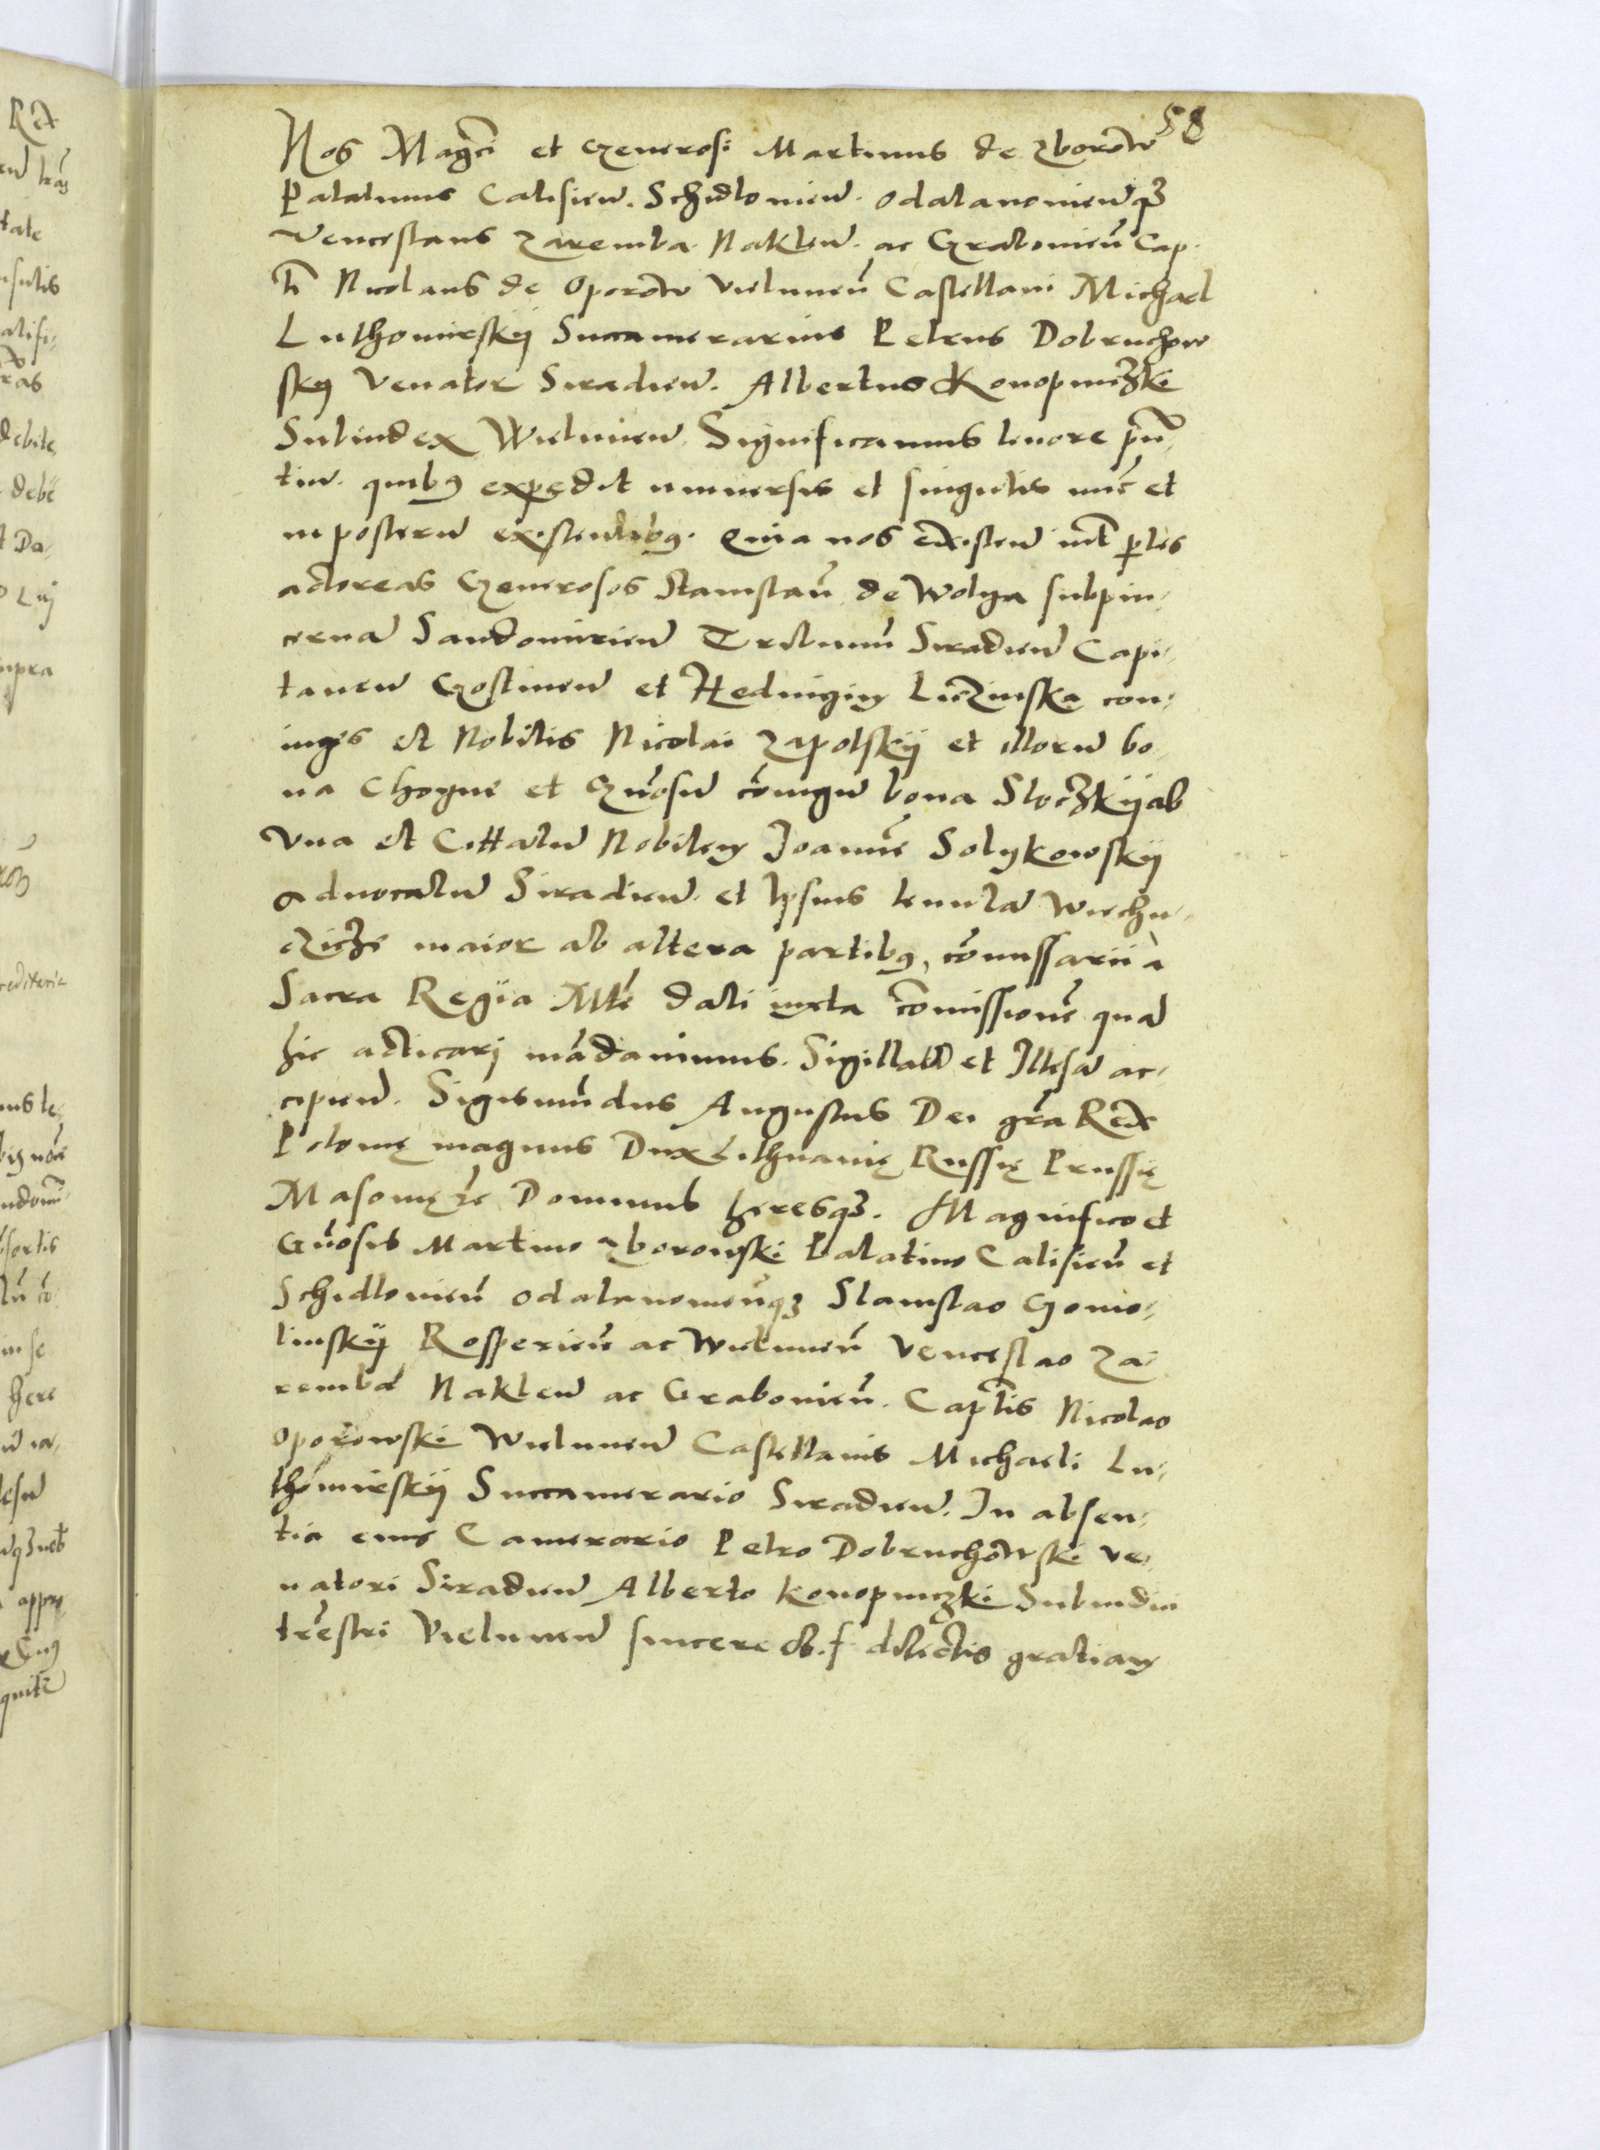 58
Nos Magci et Generosi Martinus de Zborow
Palatinus Calisien. Schidlovien. Odalanovienqz
Venceslaus Zaremba Naklen. ac Grabovien Cap.
Nicolaus de Oporow Vielunen Castellani Michael
Luthomirskij Succamerarius Petrus Dobruchow
skij Venator Siradien. Albertus Konopniczki
Subiudex Wielunien. Significamus tenore pn
tiu. quibus expedit universis et singulis nuc et
in posteru existentibus. Quia nos existen int ptes
actoreas Generosos Stanislau de Wolya subpin,
cerna Sandomirien Tribunu Siradien Capi,
taneu Gostinen et Hedvigim Liczinska con,
iuges et Nobilis Nicolai Zapolskij et illoru bo
na Choyne et Gnosu coniugu bona Sloczkij ab
una et Cittatu Nobilem Joanne Solykowskij
Advocatu Siradien. et Ipsius tenuta Wiechu,
cziche maior ab altera partibus, comissarii a
Sacra Regia Mte dati iuxta comissione qua
hic acticari madavimus. Sigillata et Illesa ac,
cipien. Sigismudus Augustus Dei gra Rex
Polonię magnus Dux Lithuanię Russię Prussię
Masovię Dominus heresqz. Magnifico et
Gnosis Martino Zborowski Palatino Calisien et
Schidlovien Odalanovienqz Stanislao Gomo,
linskij Rosperien ac Wielunen Venceslao Za
remba Naklen ac Grabovien. Captis Nicolao
Oporowski Wielunen Castellanis Michaeli Lu,
thomirskij Succamerario Siradien. In absen,
tia eius Camerario Petro Dobruchowski Ve,
natori Siradien Alberto Konopniczki Subiudici
trestri Vielunen sincere et f. dilectis gratiam